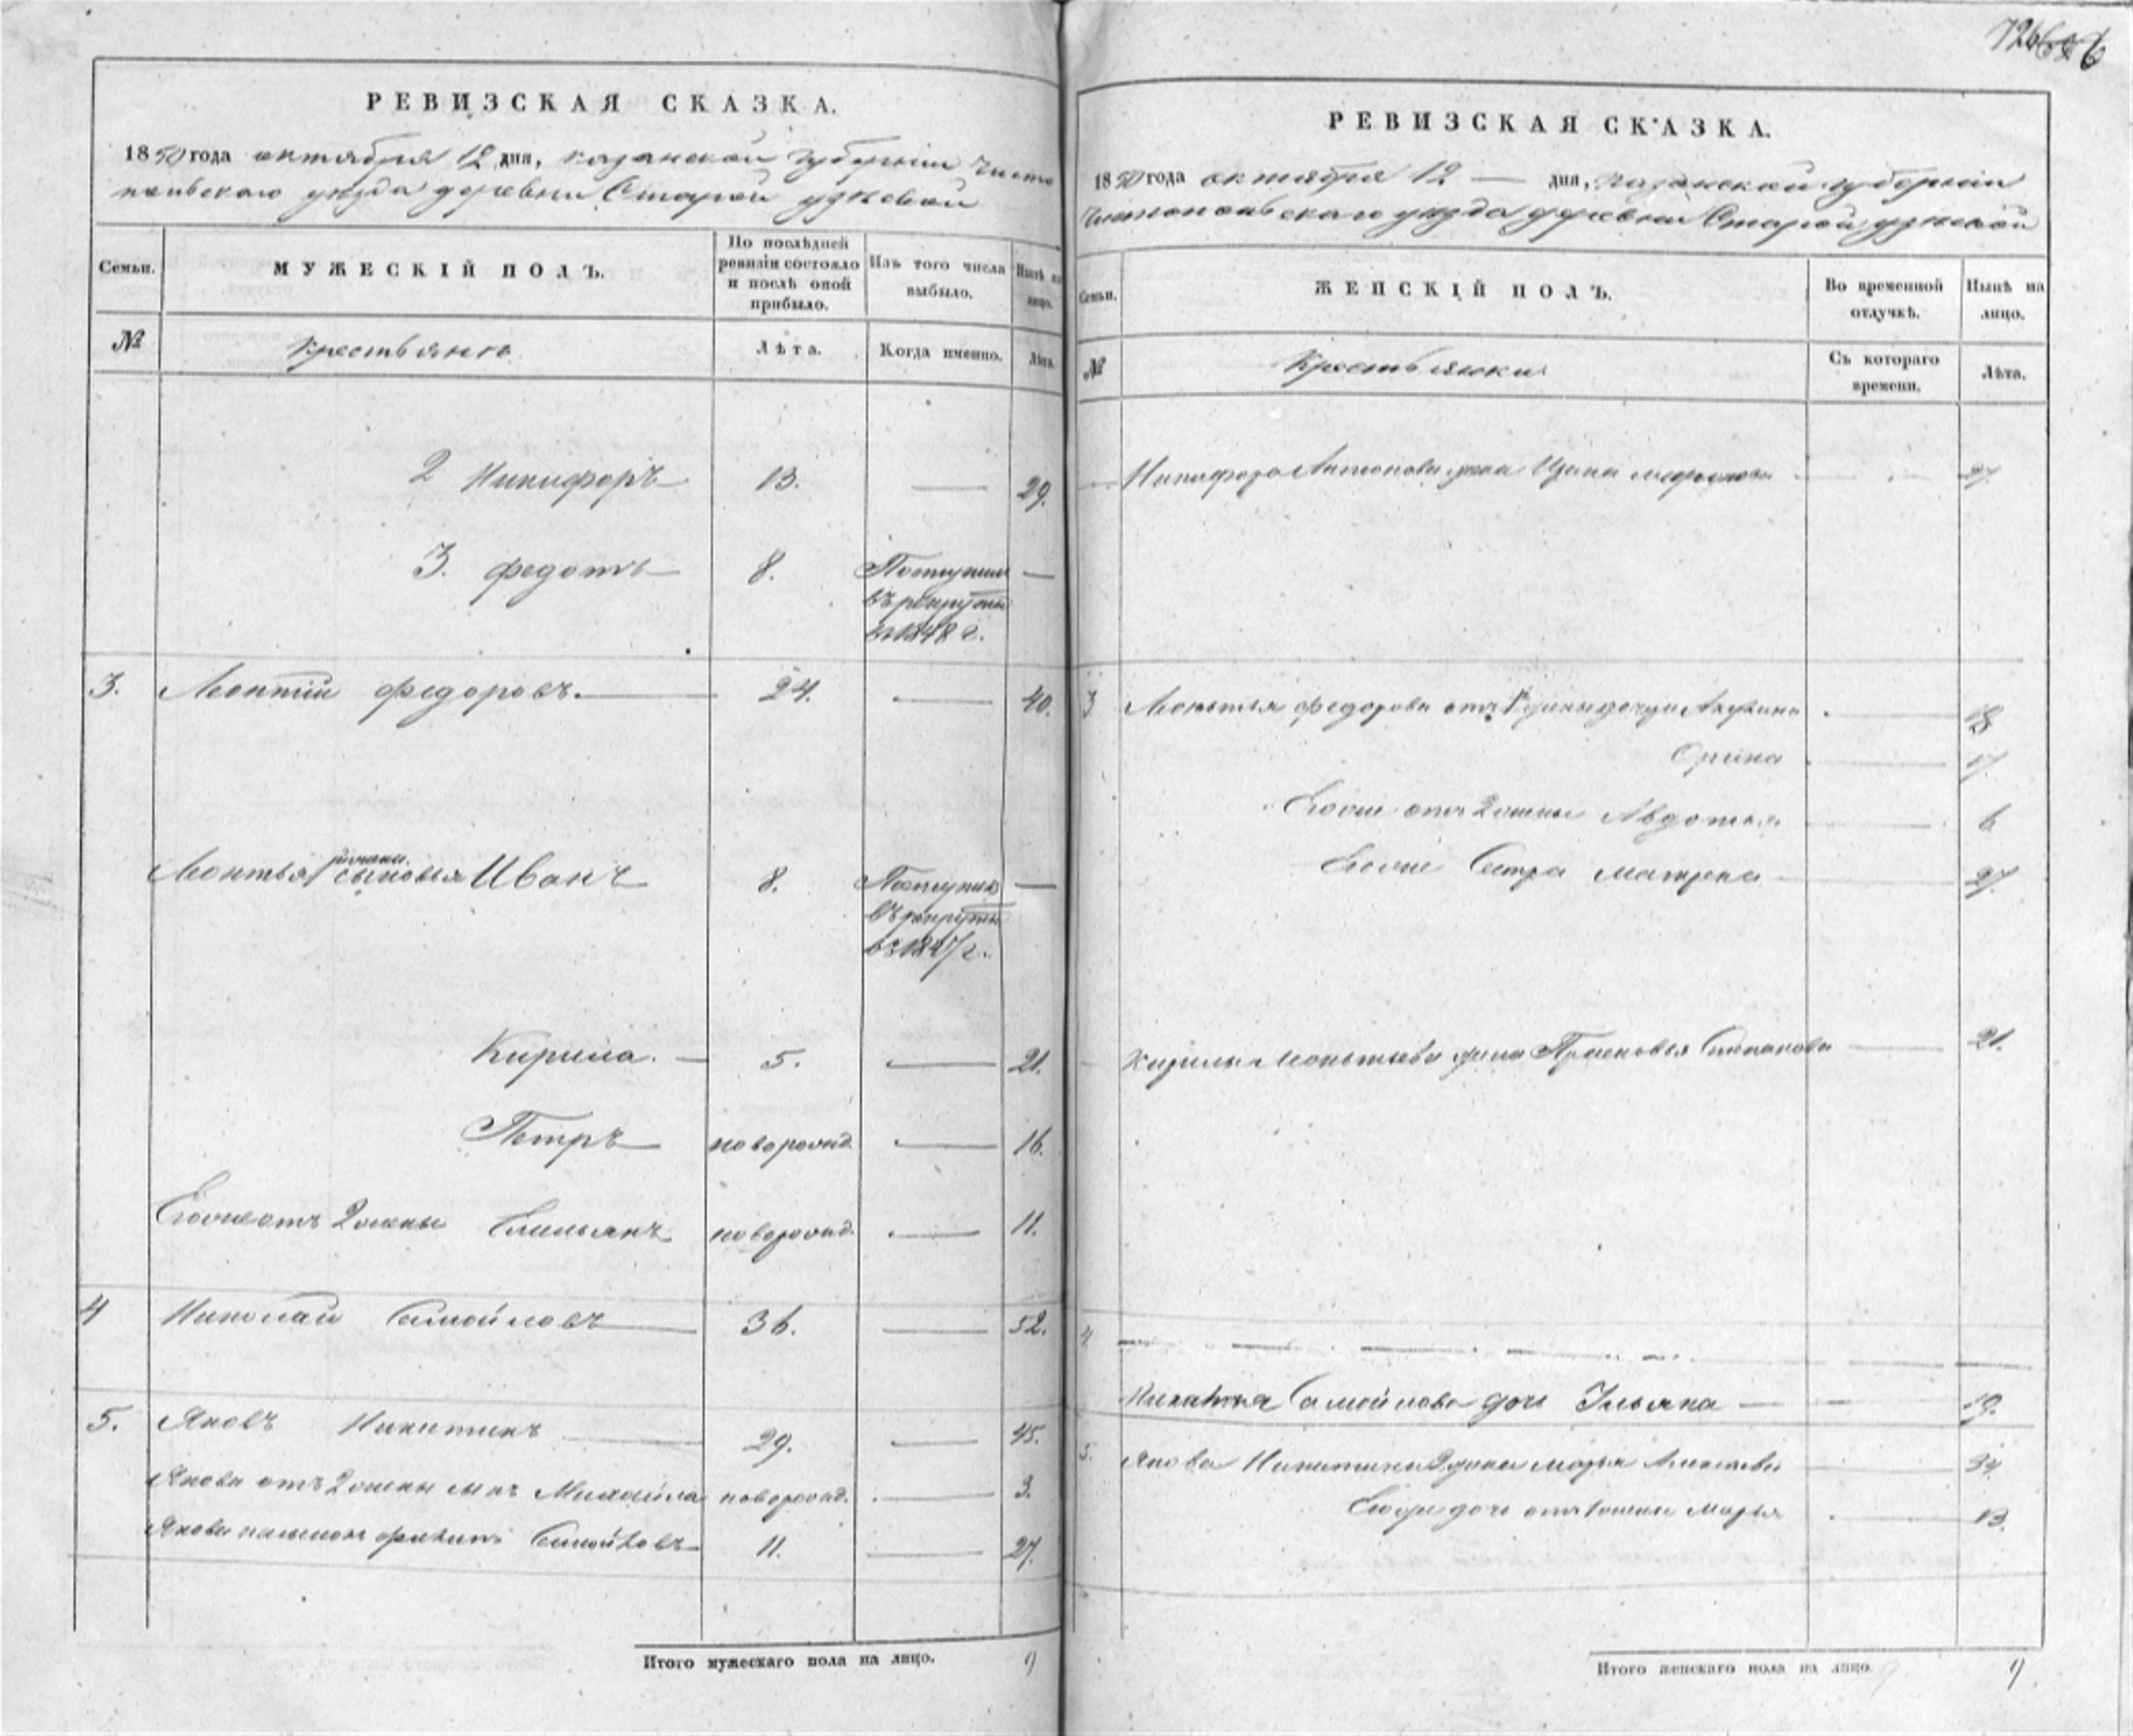 РЕВИЗСКАЯ СКАЗКА.
1850 года октября 12 дня, казанской губернiи Чисто
польскаго уезда деревни Старой узеевой
Семьи.
МУЖЕСКIЙ ПОЛЪ.
По послѣдней ревизiи состояло и послѣ оной прибыло.
Изъ того числа выбыло.
Нынѣ на лицо.
№
Крестьяне
Лѣта.
Когда именно.
Лѣта.
2 Никифоръ 13. — 29.
3. федотъ 8. Поступил —
въ рекруты
въ 1848 г.
3. Леонтiй федоровъ. 24. — 40.
Леонтья сыновья Иванъ 8. Поступил —
въ рекруты
въ 1847 г.
Кирила. — 5. — 21.
Петръ новорожд. — 16.
Егоже отъ 2 жены Емельянъ новорожд. — 11.
4 Николай Самойловъ 36. — 52.
5. Яковъ Никитинъ 29. — 45.
Якова отъ 2 жены сынъ Михайла новорожд. — 3.
Якова Самойловъ 11. — 27.
Итого мужескаго пола на лицо. 9
726
РЕВИЗСКАЯ СКАЗКА.
1850 года октября 12 — дня, казанской губернiи
Чистопольскаго уезда деревни Старой узеевой
Семьи.
ЖЕНСКIЙ ПОЛЪ.
Во временной отлучкѣ.
Нынѣ на лицо.
№
Крестьянки
Съ котораго времени.
Лѣта.
Никифора Антонова жена 27
3 Леонтья федорова отъ 1 жены дочери Акулина 18
Орина 17.
Егоже отъ 2 жены Авдотья 6
Егоже Сестра матрена 27.
Кирилы Леонтьева жена Прасковья Степанова 21.
4.
Самойлова дочь Ульяна — 19.
5. Якова Никитина 2 жена марья Алексѣева 34.
Его же дочь отъ 1 жены Марья 13.
Итого женскаго пола на лицо. 9